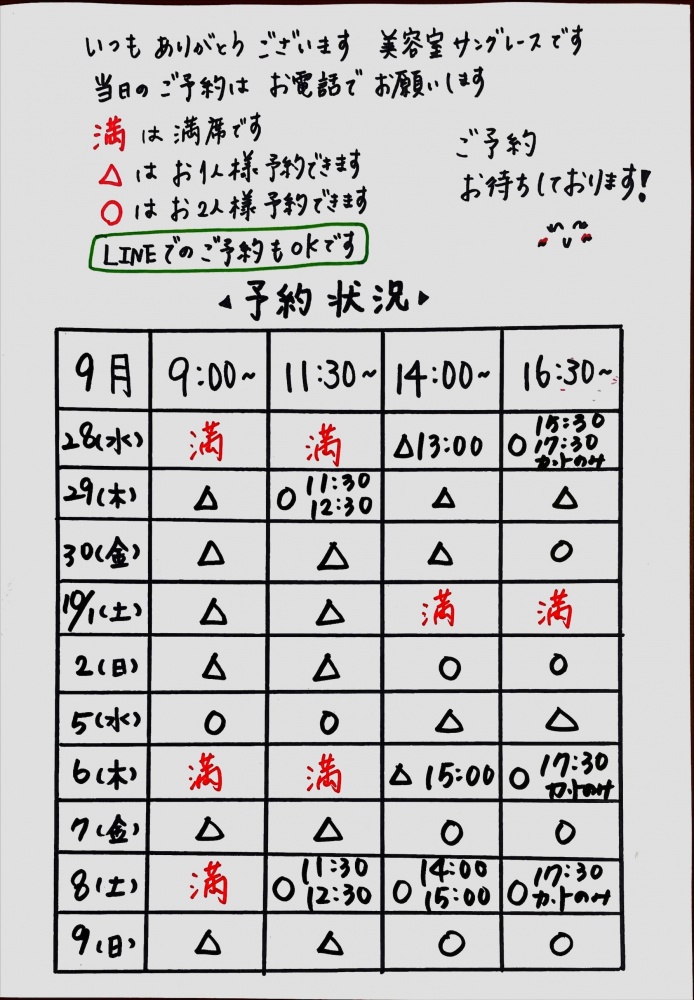 いつも ありがとう ございます 美容室 サングレースです
当日の ご予約は お電話で お願いします
満 は 満席です
△ は お1人様 予約できます
○ は お2人様 予約できます
LINEでの ご予約も OKです
ご予約
お待ちしております!
◀ 予約 状況 ▶
9月 9:00~ 11:30~ 14:00~ 16:30~
28(水) 満 満 △13:00 ○15:30 17:30 カットのみ
29(木) △ ○11:30 12:30 △ △
30(金) △ △ △ ○
10/1(土) △ △ 満 満
2(日) △ △ ○ ○
5(水) ○ ○ △ △
6(木) 満 満 △15:00 ○17:30 カットのみ
7(金) △ △ ○ ○
8(土) 満 ○11:30 12:30 ○14:00 15:00 ○17:30 カットのみ
9(日) △ △ ○ ○